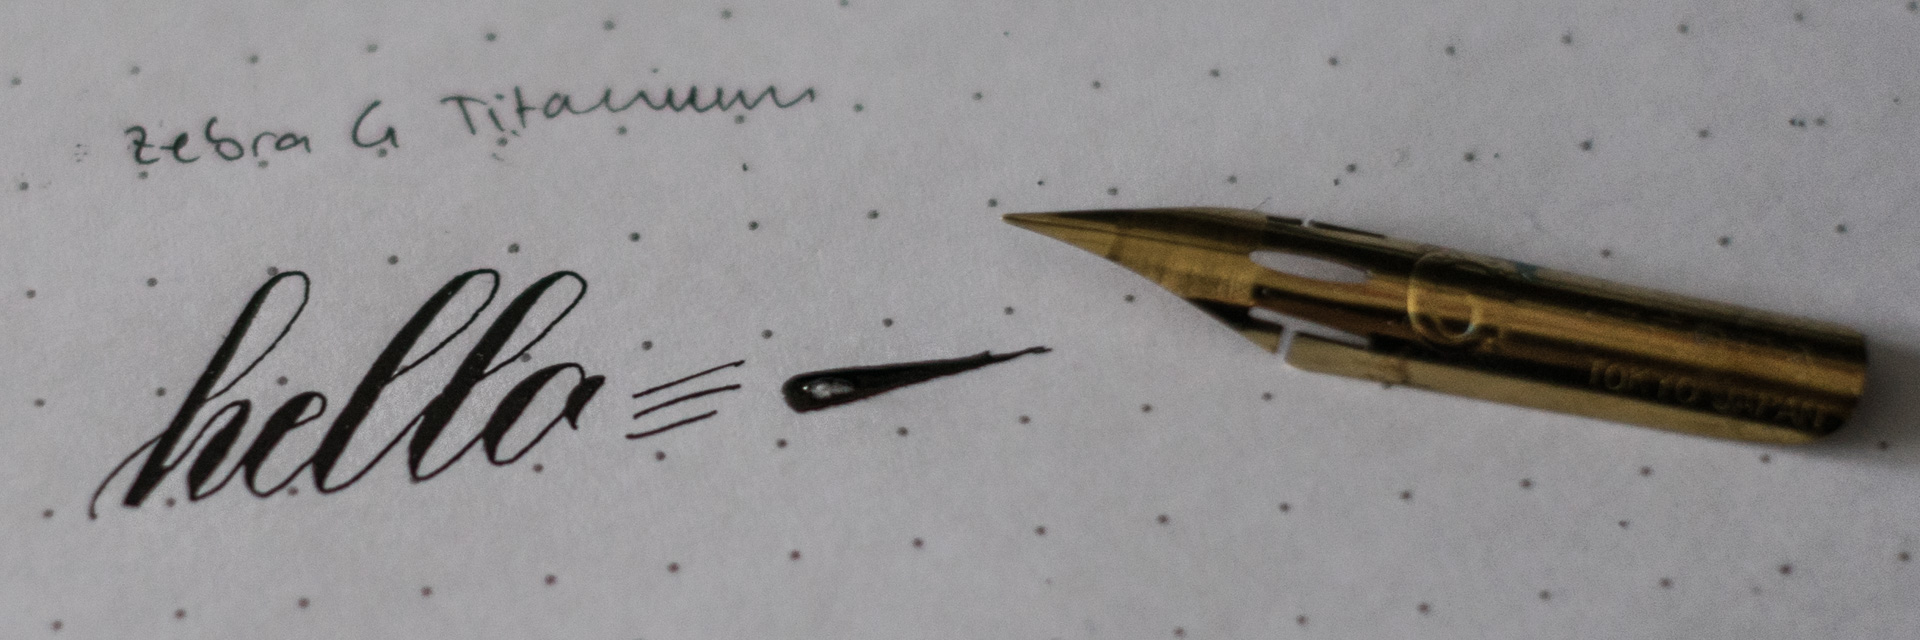 Zebra G Titanium
hello
TOKYO JAPAN